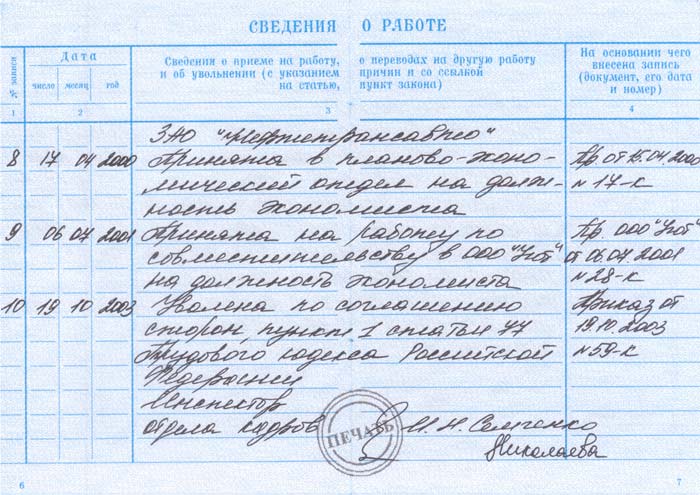 СВЕДЕНИЯ О РАБОТЕ
№ записи
Дата
число месяц год
Сведения о приеме на работу, о переводах на другую работу
и об увольнении (с указанием причин и со ссылкой
на статью, пункт закона)
На основании чего
внесена запись
(документ, его дата
и номер)
1 2 3 4
ЗАО "Нефтетрансавто"
8 17 04 2000 Принята в планово-эконо- Пр от 15.04.2000
мический отдел на долж- № 17-к
ность экономиста
9 06 07 2001 Принята на работу по Пр ООО "Уют"
совместительству в ООО "Уют" от 06.07.2001
на должность экономиста № 28-к
10 19 10 2003 Уволена по соглашению Приказ от
сторон, пункт 1 статьи 77 19.10.2003
Трудового кодекса Российской № 59-к
Федерации
Инспектор
отдела кадров ПЕЧАТЬ И. Н.
Николаева
6 7